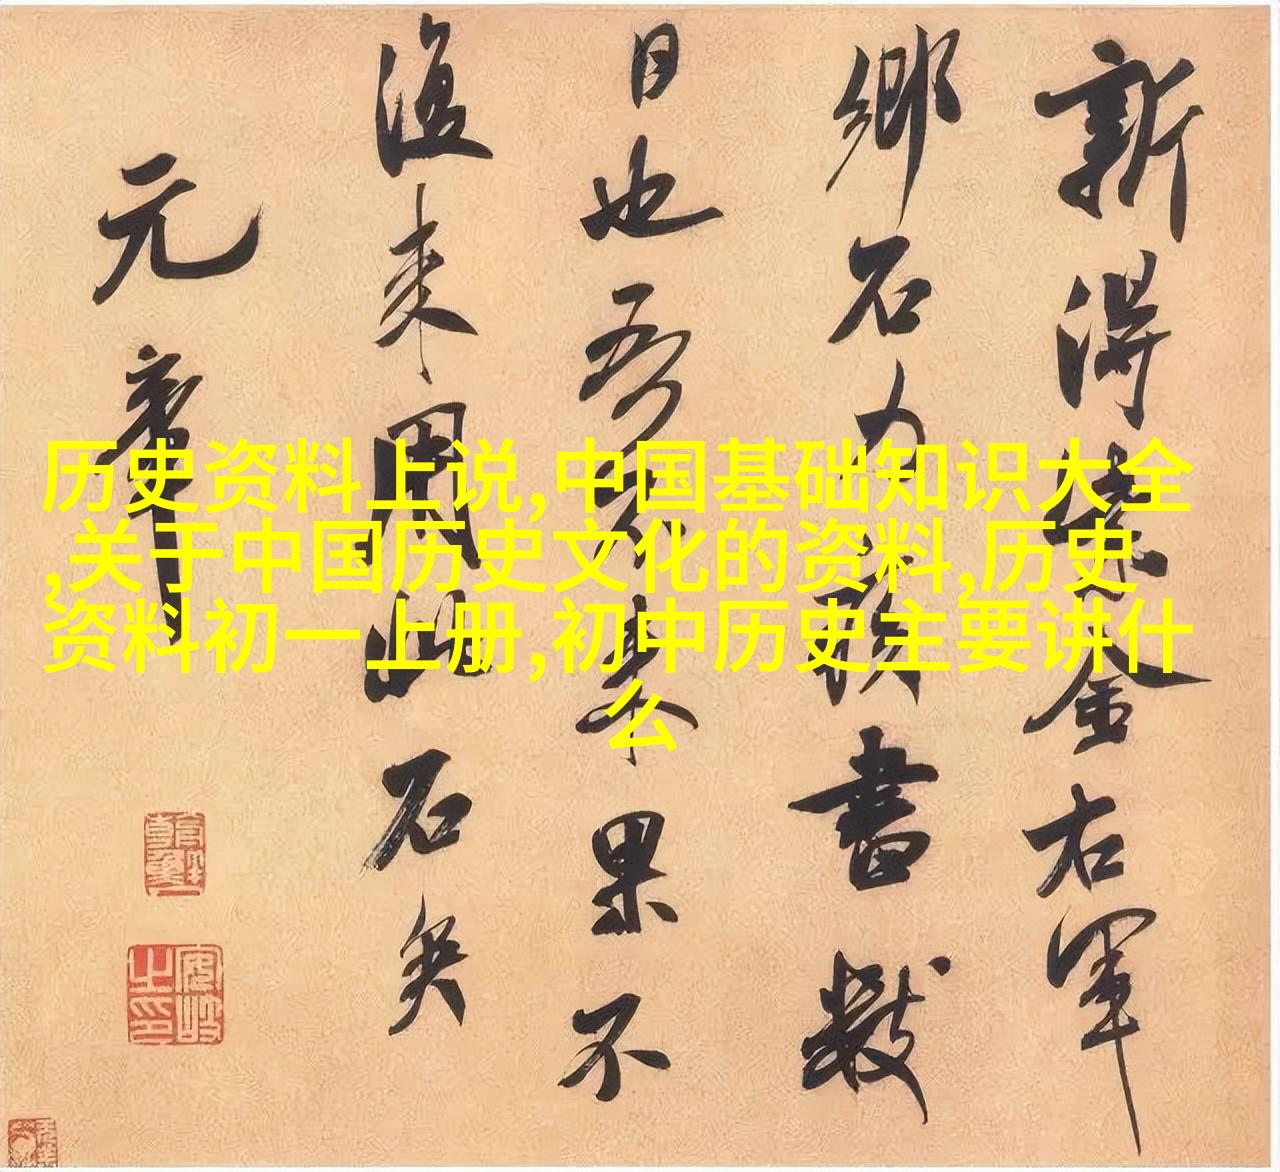 历史资料上说,中国基础知识大全
,关于中国历史文化的资料,历史
资料初一上册,初中历史主要讲什
么
新得紫金右軍
鄉石力疾書數
日也吾不来果不
復来用此石矣
元章